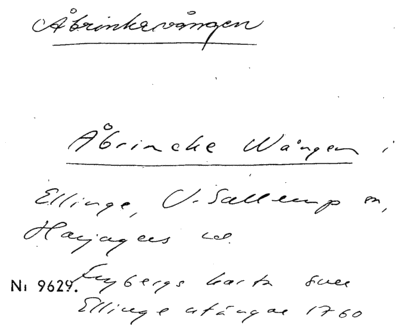 Åbrinkevången
Åbrincke Wången i
Ellinge, V. Sallerup sn,
Harjagers hd.
Ni 9629. Enybergs karta över
Ellinge utängar 1760